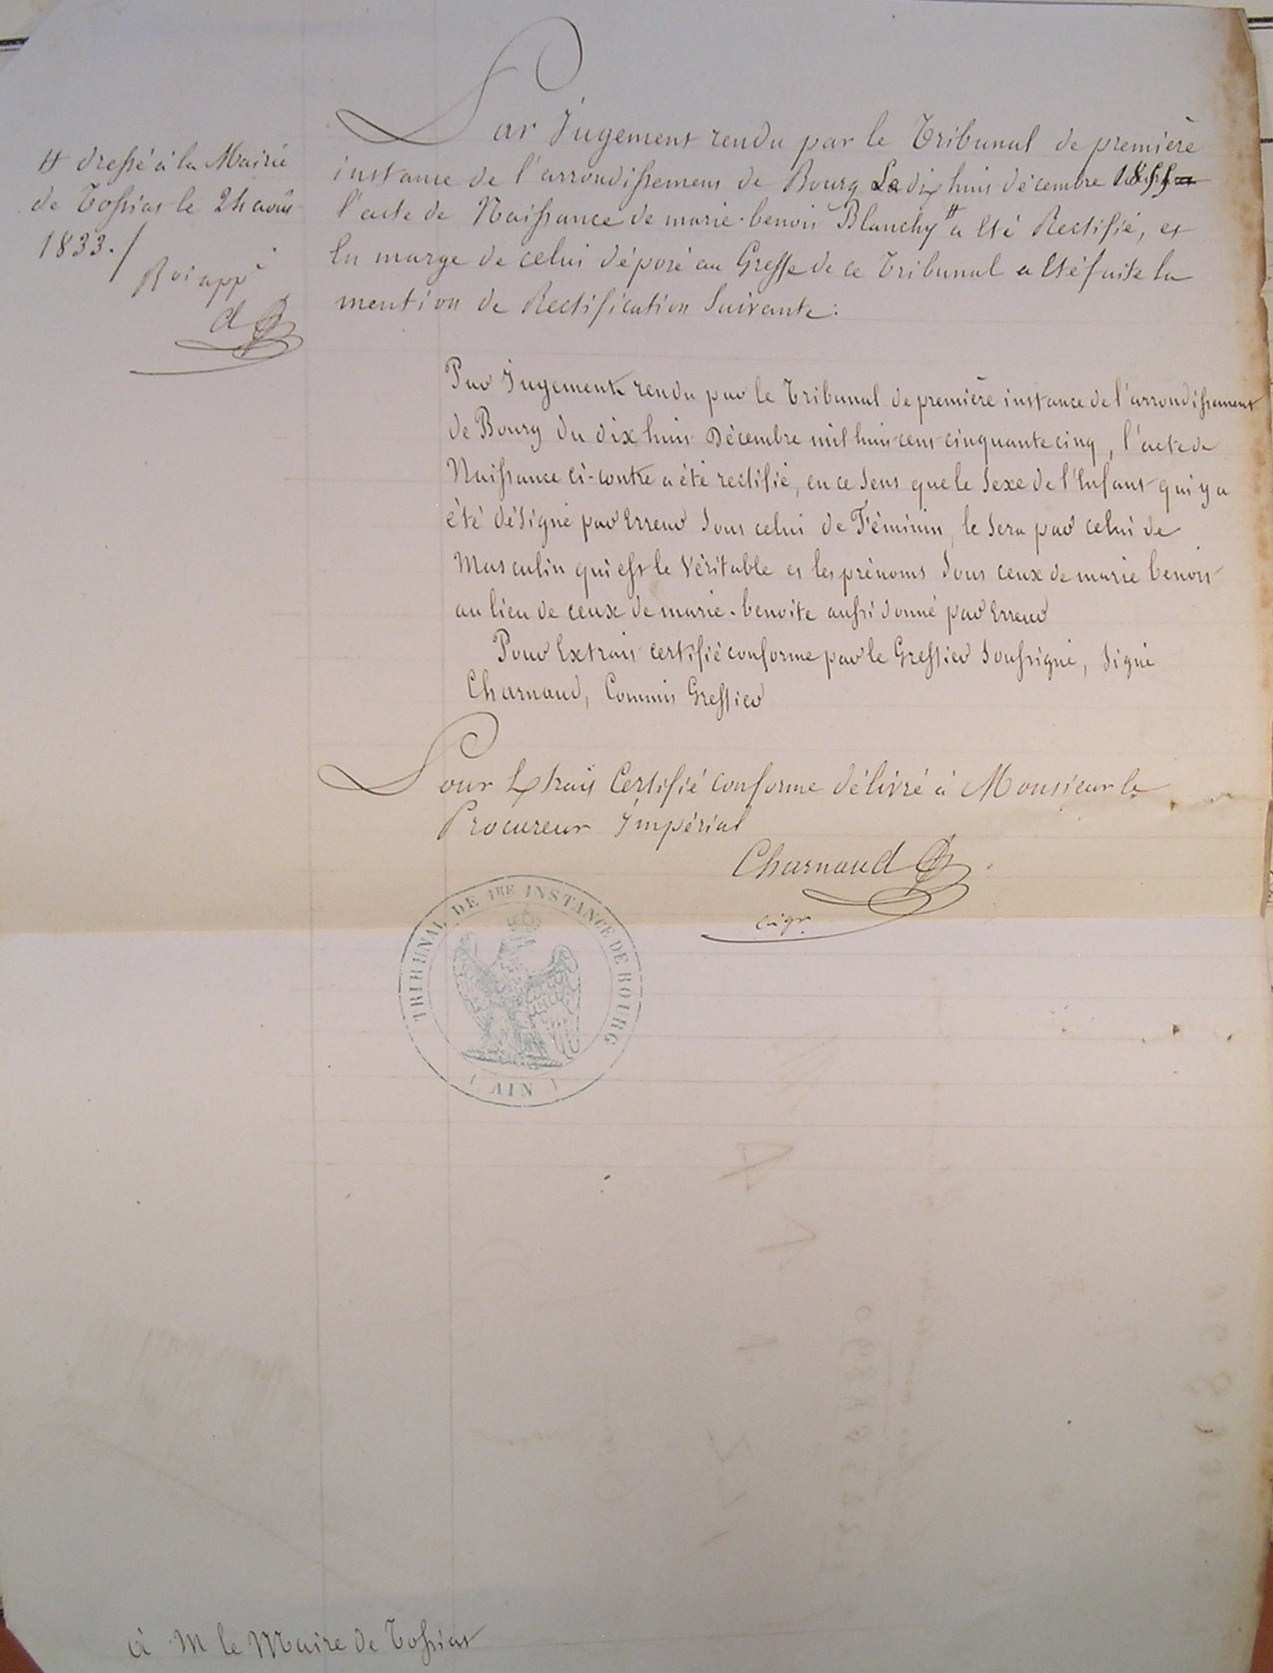 # dressé à la Mairie
de Tossiat le 24 août
1833./
Par Jugement rendu par le Tribunal de première
instance de l'arrondissement de Bourg Le dix huit décembre 1855
l'acte de Naissance de marie-benoit Blanchy # a Eté Rectifié, et
En marge de celui déposé au Greffe de ce Tribunal a Eté faite la
mention de Rectification Suivante:
Par Jugement rendu par le Tribunal de première instance de l'arrondissement
de Bourg du dix huit Décembre mil huit cent cinquante cinq, l'acte de
Naissance ci-contre a été rectifié, en ce sens que le Sexe de l'Enfant qui y a
été désigné par Erreur Sous celui de Féminin, le Sera par celui de
Masculin qui est le Véritable et les prénoms Sous ceux de marie benoit
au lieu de ceux de marie-benoite aussi donné par Erreur
Pour Extrait certifié conforme par le Greffier Soussigné, Signé
Charnaud, Commis Greffier
Pour Extrait Certifié conforme délivré à Monsieur le
Procureur Impérial
Charnaud
TRIBUNAL DE 1RE INSTANCE DE BOURG
(AIN)
à M le Maire de Tossiat